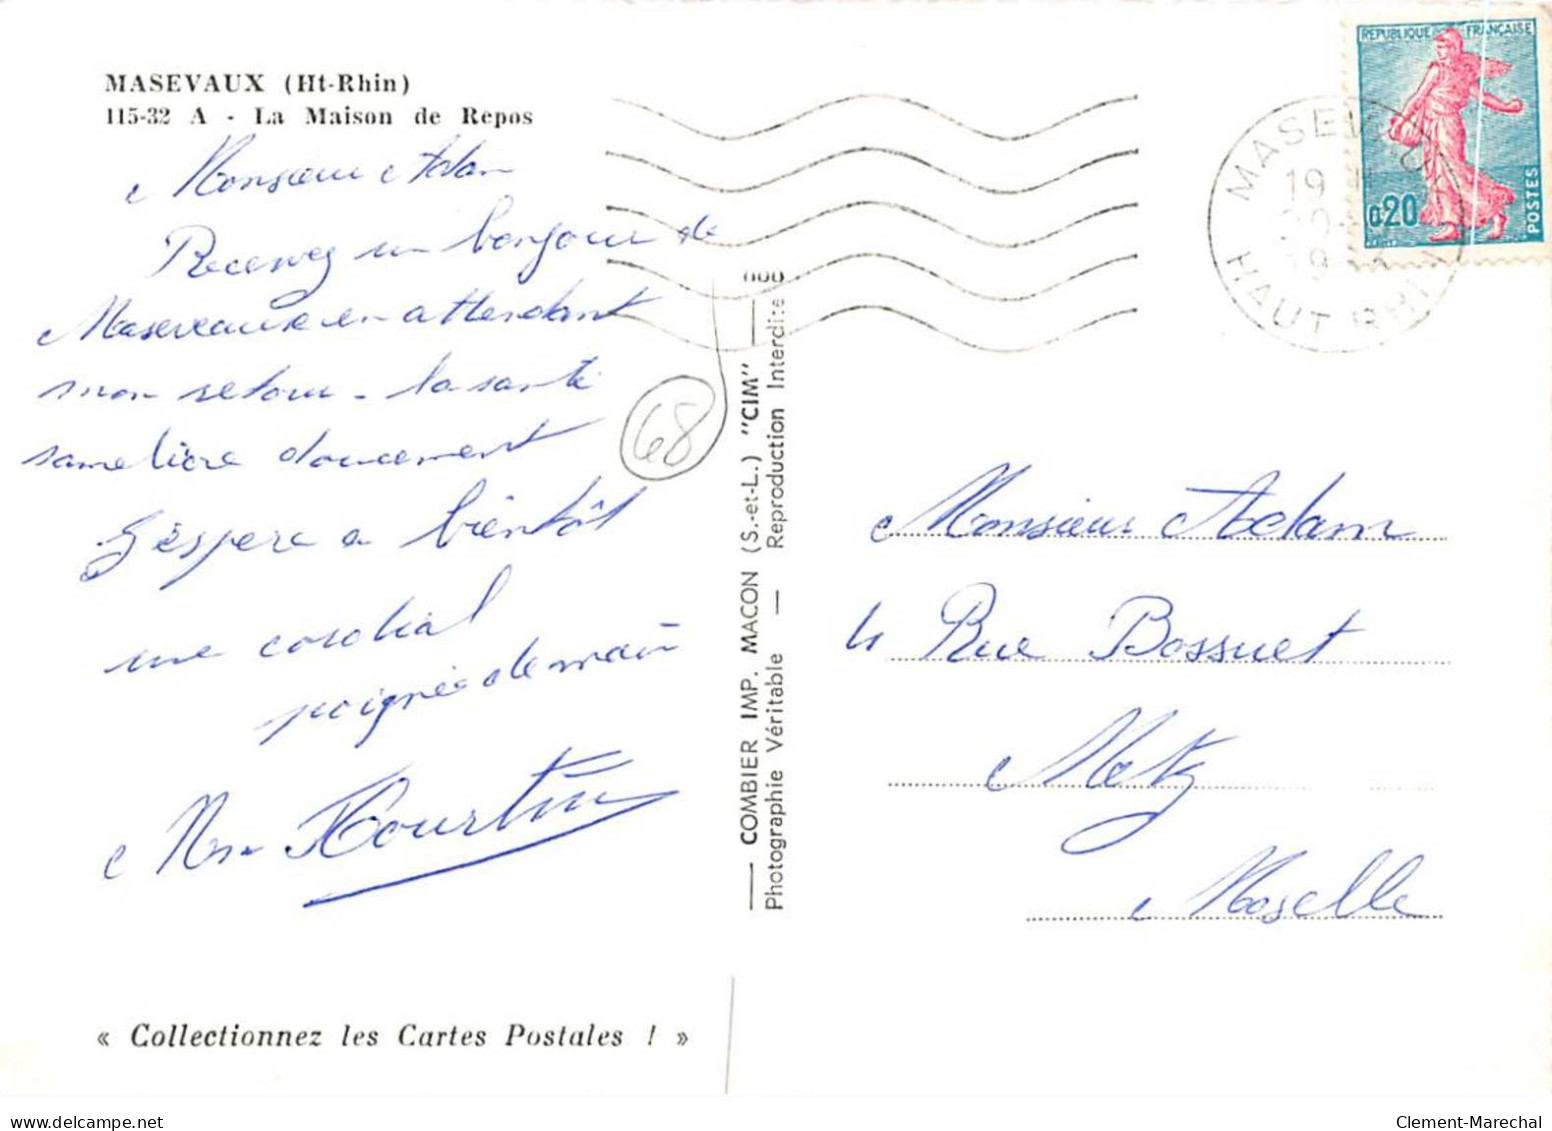 MASEVAUX (Ht-Rhin)
115-32 A - La Maison de Repos
Monsieur Adam
Recevez un bonjour de
Maseveaux en attendant
mon retour - la santé
sameliore doucement
J'éspere a bientôt
une cordial
poignée de main
Mr Courtin
« Collectionnez les Cartes Postales ! »
68
COMBIER IMP. MACON (S.-et-L.) "CIM"
Photographie Véritable — Reproduction Interdite
REPUBLIQUE FRANÇAISE
0,20
POSTES
MASEVAUX
19
19
HAUT RHIN
Monsieur Adam
4 Rue Bossuet
Metz
Moselle
delcampe.net
Clement-Marechal